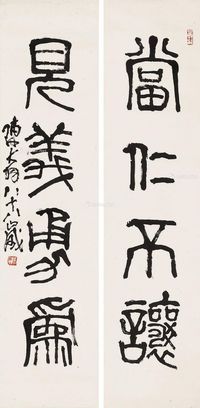 當仁不讓
見義勇為
陳大羽八十八歲